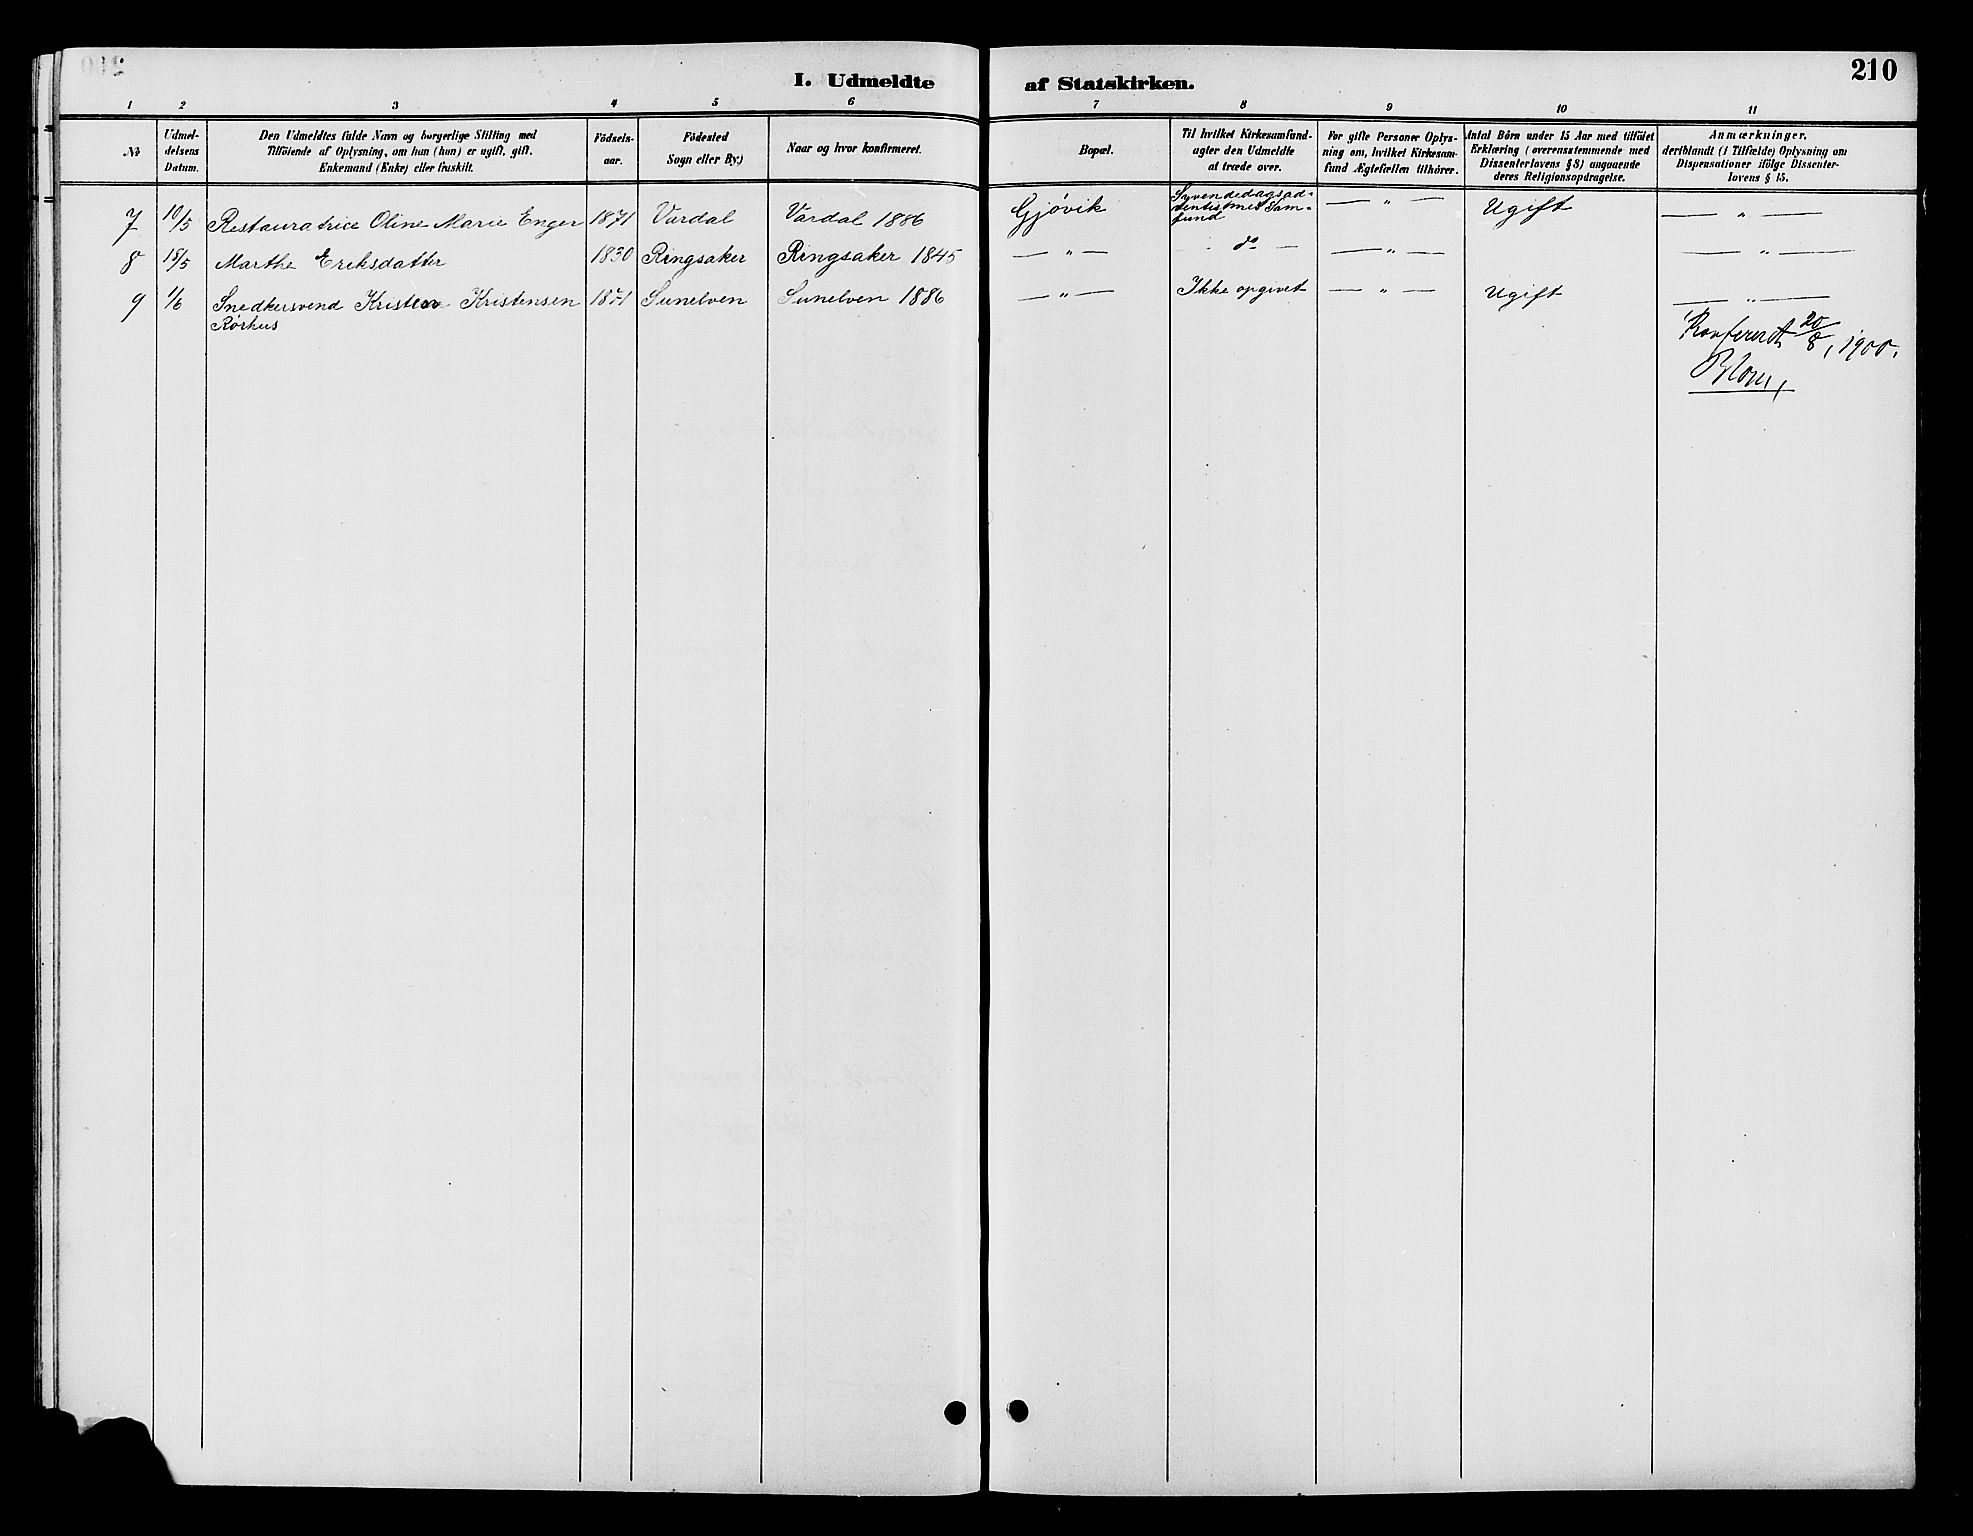 I. Udmeldte af Statskirken. 210
1 2 3 4 5 6 7 8 9 10 11
No
Udmeldelsens Datum.
Den Udmeldtes fulde Navn og borgerlige Stilling med
Tilföiende af Oplysning, om han (hun) er ugift, gift,
Enkemand (Enke) eller fraskilt.
Födsels-
aar.
Födested
Sogn eller By.)
Naar og hvor konfirmeret.
Bopæl.
Til hvilket Kirkesamfund-
agter den Udmeldte
at træde over.
For gifte Personer Oplys-
ning om, hvilket Kirkesam-
fund Ægtefællen tilhörer.
Antal Börn under 15 Aar med tilföiet
Erklæring (overensstemmende med
Dissenterlovens § 8) angaaende
deres Religionsopdragelse.
Anmærkninger,
deriblandt (i Tilfælde) Oplysning om
Dispensationer ifölge Dissenter-
lovens § 15.
7 10/5 Restauratrice Oline Marie Enger 1871 Vardal Vardal 1886 Gjövik Syvendedagsad-
ventisternes Sam-
fund — " — Ugift — " —
8 18/5 Marthe Eriksdatter 1830 Ringsaker Ringsaker 1845 — " — — do — — " — — " —
9 1/6 Snedkersvend Kristen Kristensen 1871 Sunelven Sunelven 1886 — " — Ikke opgivet — " — Ugift — " —
Rörhus
Konfereret 20/8, 1900.
Blom,